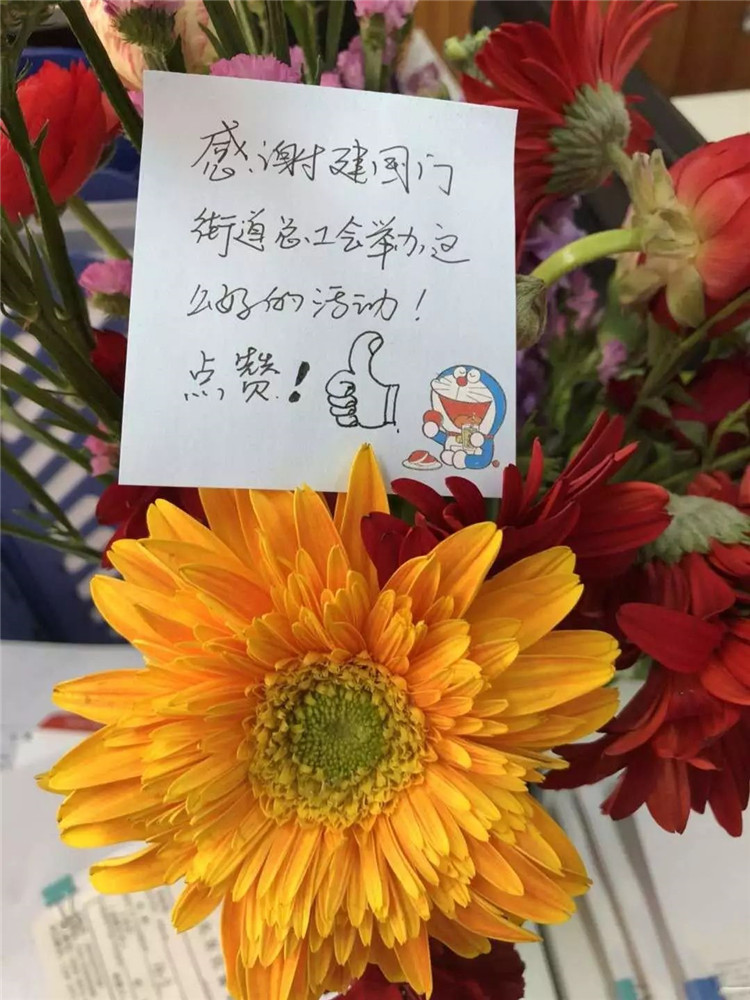 感谢建国门
街道总工会举办这
么好的活动！
点赞！